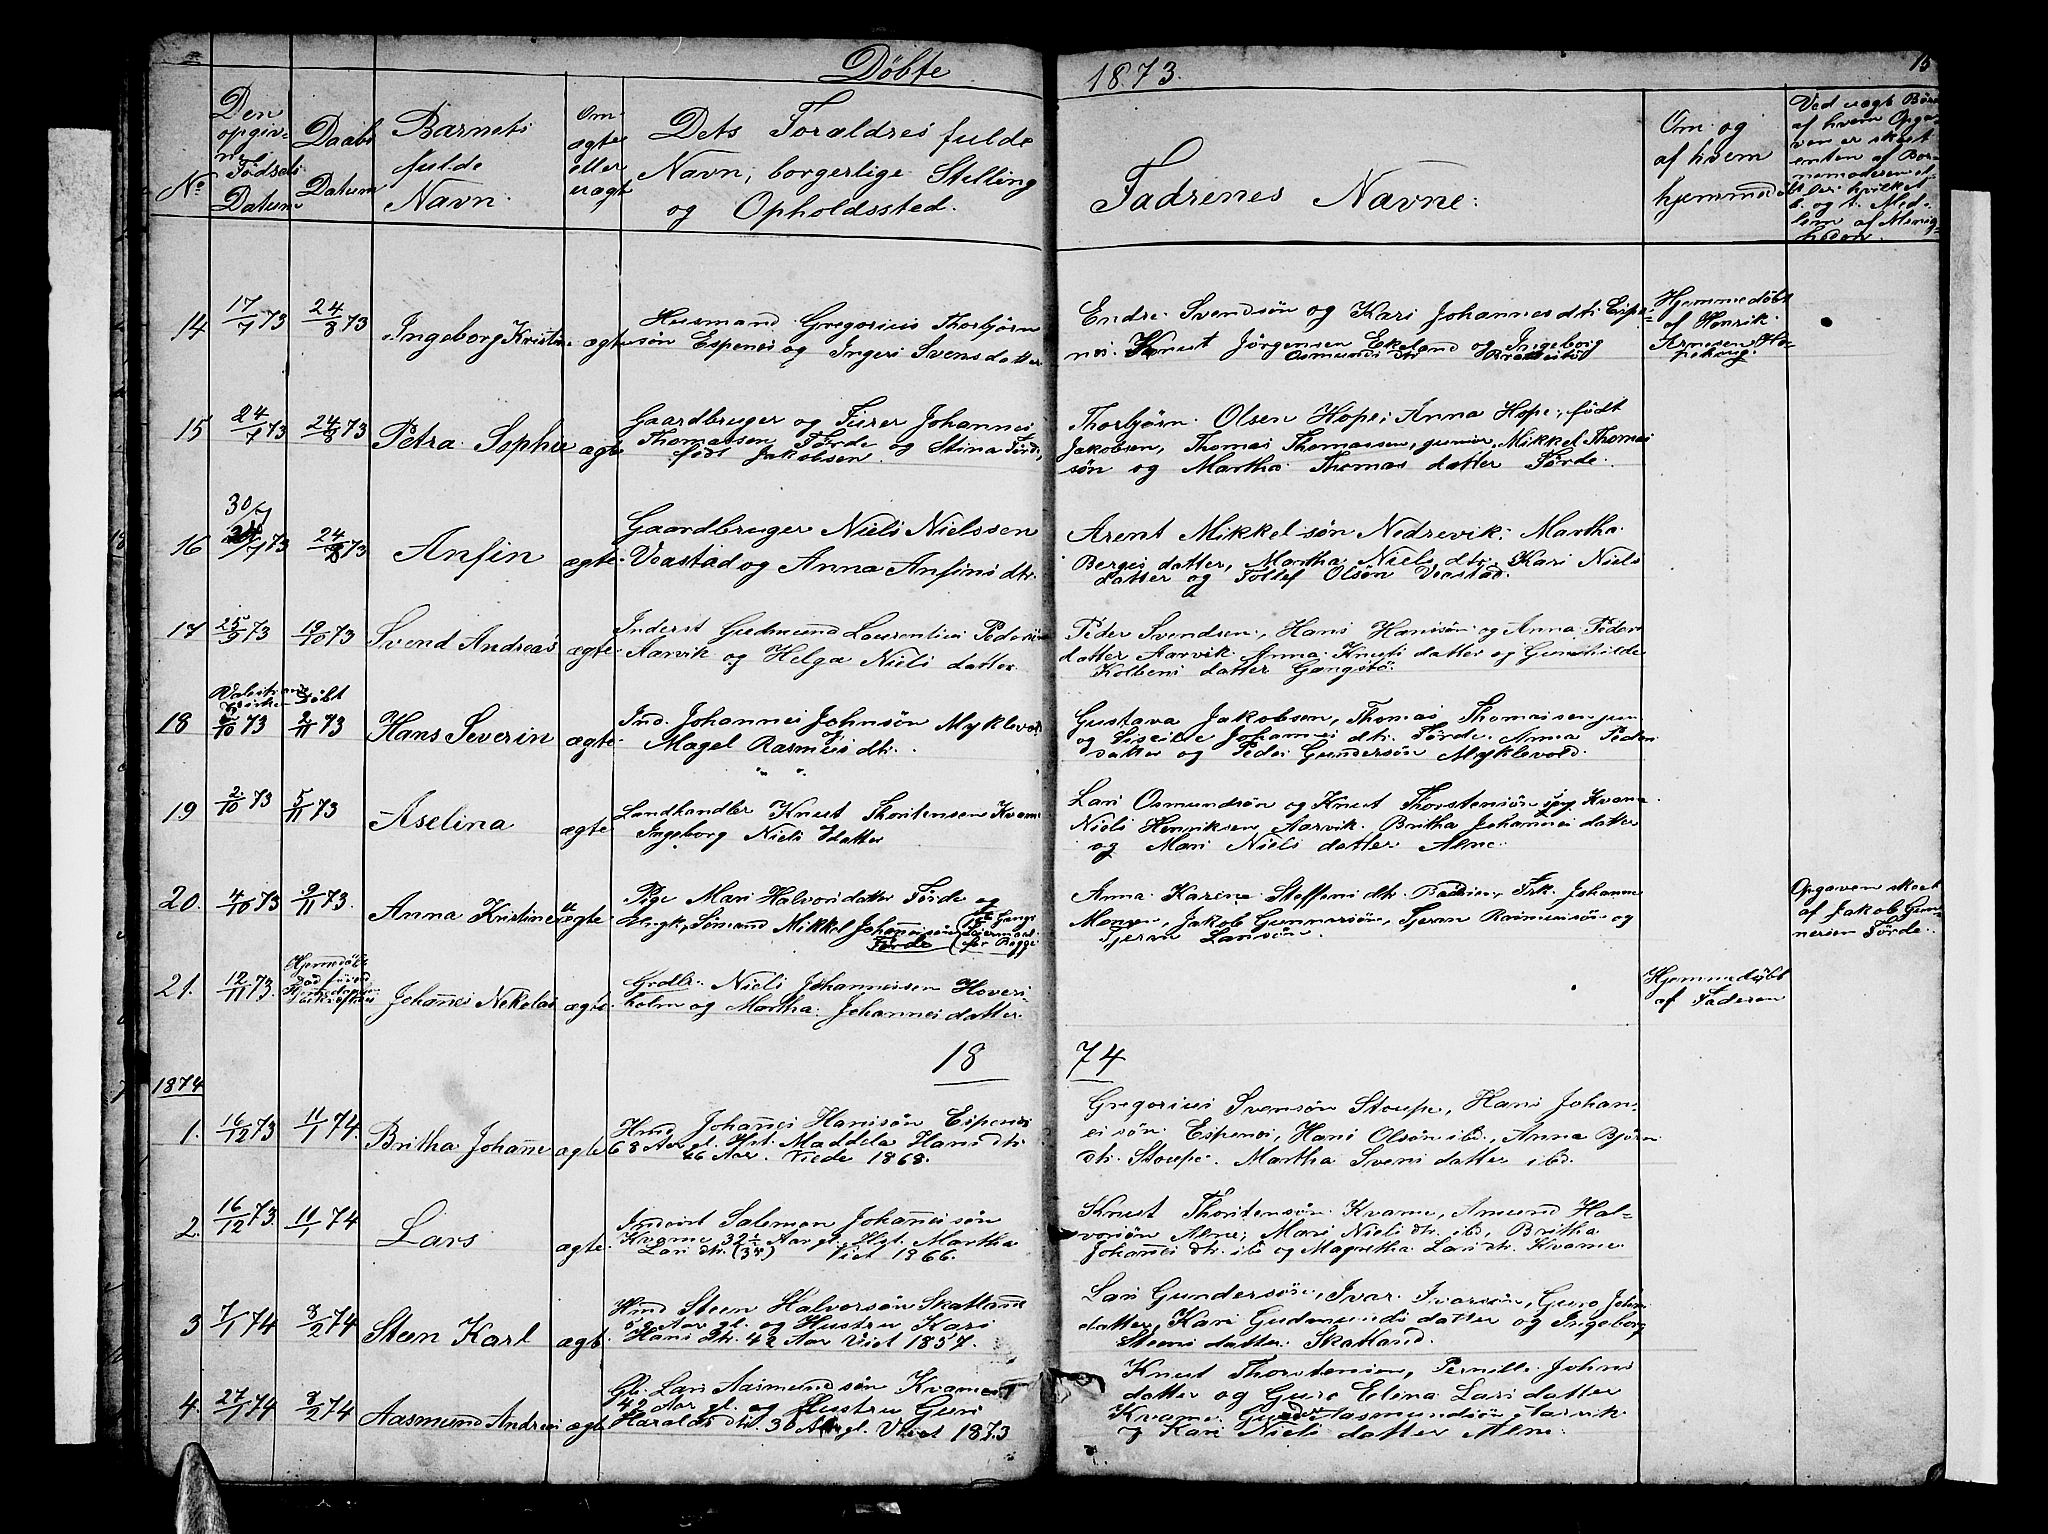 Döbte 1873.
15
No
Den opgivne Födsels Datum
Daabs Datum
Barnets fulde Navn.
Om ægte eller uægte
Dets Forældres fulde
Navn, borgerlige Stilling
og Opholdssted.
Fadrenes Navne.
Om og af hvem hjemmedöbt
14 17/7 73 24/8 73 Ingeborg Kristine ægte
Husmand Gregorius Thorbjörn
sön Espenes og Inger Svensdatter
Endre Svendsön og Kari Johannesdtr Espe-
nes. Knut Jörgensen Ekeland og Ingeborg
Osmunds dtr
Hjemmedöbt
af Henrik
Arnesen
15 24/7 73 24/8 73 Petra Sophie ægte
Gaardbruger og Furer Johannes
Thomassen Förde og Stina Förde,
født Jakobsen.
Thorbjörn Olsen Hope, Anna Hope, født
Jakobsen, Thomas Thomassen junior, Mikkel Thomas
sön og Martha Thomas datter Förde.
16 30/7 73 24/8 73 Anfin ægte
Gaardbruger Niels Nielssen
Vaastad og Anna Anfins dtr
Arent Mikkel sön Nedrevik, Martha
Berges datter, Martha Niels dtr. Kari Niels
datter og Tollef Olsön Vaastad.
17 25/9 73 19/10 73 Svend Andreas ægte
Inderst Gudmund Laurentius Pedersön
Aarvik og Helga Niels datter
Peder Svendsen, Hans Hansön og Anna Peders
datter Aarvik. Anna Knuts datter og Gunhilde
Kolbens datter Gangstö.
18 /10 73 2/11 73 Hans Severin ægte
Ind. Johannes Johnsön Myklevold
og
Magel Rasmus dtr.
Gustava Jakobsen, Thomas Thomassen jun
og Johannes dtr. Förde. Anna Peders
datter og Peder Gundersön Myklevold.
19 2/10 73 5/11 73 Aselina ægte
Landhandler Knut Thorstensen Kvame
Ingeborg Niels datter
Lars Osmundsön og Knut Thorstensön Kvame
Niels Henriksen Aarvik. Britha Johannes datter
og Mari Niels datter Alne.
20. 4/10 73 9/11 73. Anna Kristine uægte
Pige Mari Halvorsdatter Förde og
Ungk, Sömand Mikkel Johannessön
Förde (1ste Gangs Leiermaal for Begge
Anna Karine Steffens dtr. Frk. Johanne
Monsen, Jakob Gunnarsön, Tjeran Rasmussön og
Tjeran Larssön.
Opgaven skeet
af Jakob Gun-
nersen Förde.
21. 12/11 73. Johannes Nikolai ægte
Grdbr. Niels Johannessen Hovers-
holm og Martha Johannes datter
Hjemmedöbt
af Faderen
1874
1874
1. 16/12 73 11/1 74. Britha Johanne ægte
Hmd Johannes Hansön Espenes
68 Aar gl. Hst. Maddela Hansdtr
46 Aar. Viede 1868.
Gregorius Svensön Stoupe, Hans Johan-
es sön Espenes, Hans Olsön ibd., Anna Björns
dtr. Stoupe. Martha Svens datter ibd.
2. 16/12 73. 11/1 74 Lars ægte
Inderst Salemon Johannes sön
Kvame 32½ Aar gl. Hst. Martha
Lars dtr. Viet 1866.
Knut Thorstensön Kvame, Amund Hal-
vorsön Alne, Mari Niels dtr. ibd, Britha
Johannes dtr. ibd og Magretha Larsdtr. Kvame.
3 7/1 74 8/2 74 Steen Karl ægte
Hmd Steen Halvorsön Skatland
Aar gl. og Hustru Kari
Hans dtr. 42 Aar Viet 1857.
Lars Gundersön, Ivar Ivarsön, Guro Johns
datter, Kari Gudmunds datter og Ingeborg
Steens datter Skatland.
4. 27/1 74 8/2 74 Aasmund Andreas ægte
Gb. Lars Aasmundsön Kvame
42 Aar gl. og Hustru Guri
Haralds dtr. 30 Aar gl. Viet 1873
Knut Thorstensen, Pernille Johns
datter og Guro Elina Lars datter
Kvame. Aasmundsön Aarvik
og Kari Niels datter Alne.